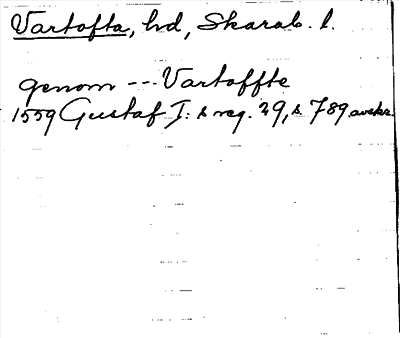 Vartofta, hd, Skarab. l.
genom --- Vartoffte
1559 Gustaf I: s reg. 29, s. 789 avskr.